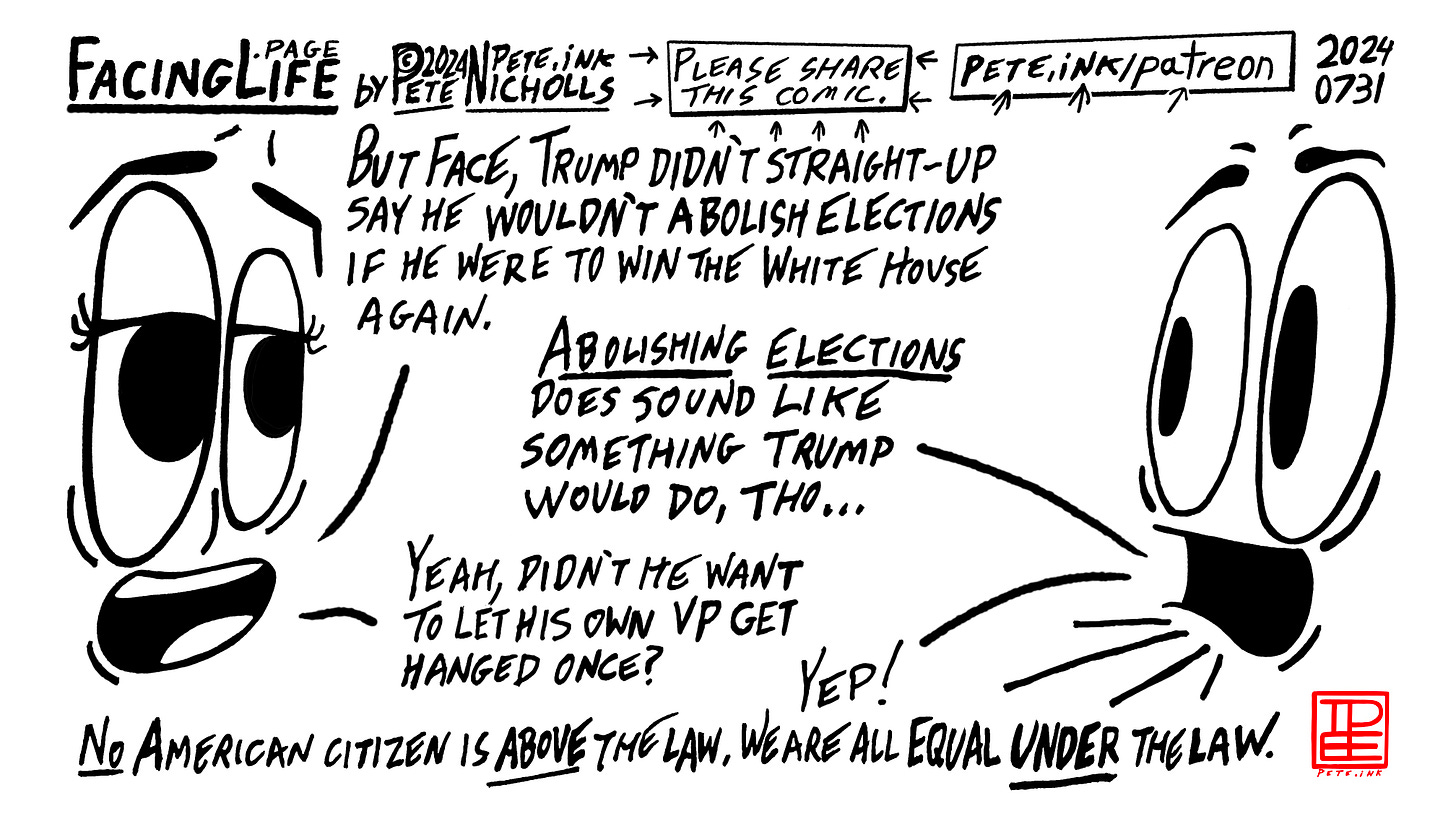 .PAGE
FACINGLIFE
by ©2024 PETE.iNK
PETE NICHOLLS
PLEASE SHARE
THIS COMIC.
PETE.iNK/patreon
2024
0731
BUT FACE, TRUMP DIDN'T STRAIGHT-UP
SAY HE WOULDN'T ABOLISH ELECTIONS
IF HE WERE TO WIN THE WHITE HOUSE
AGAIN.
ABOLISHING ELECTIONS
DOES SOUND LIKE
SOMETHING TRUMP
WOULD DO, THO...
YEAH, DIDN'T HE WANT
TO LET HIS OWN VP GET
HANGED ONCE?
YEP!
NO AMERICAN CITIZEN IS ABOVE THE LAW. WE ARE ALL EQUAL UNDER THE LAW.
PETE.iNK